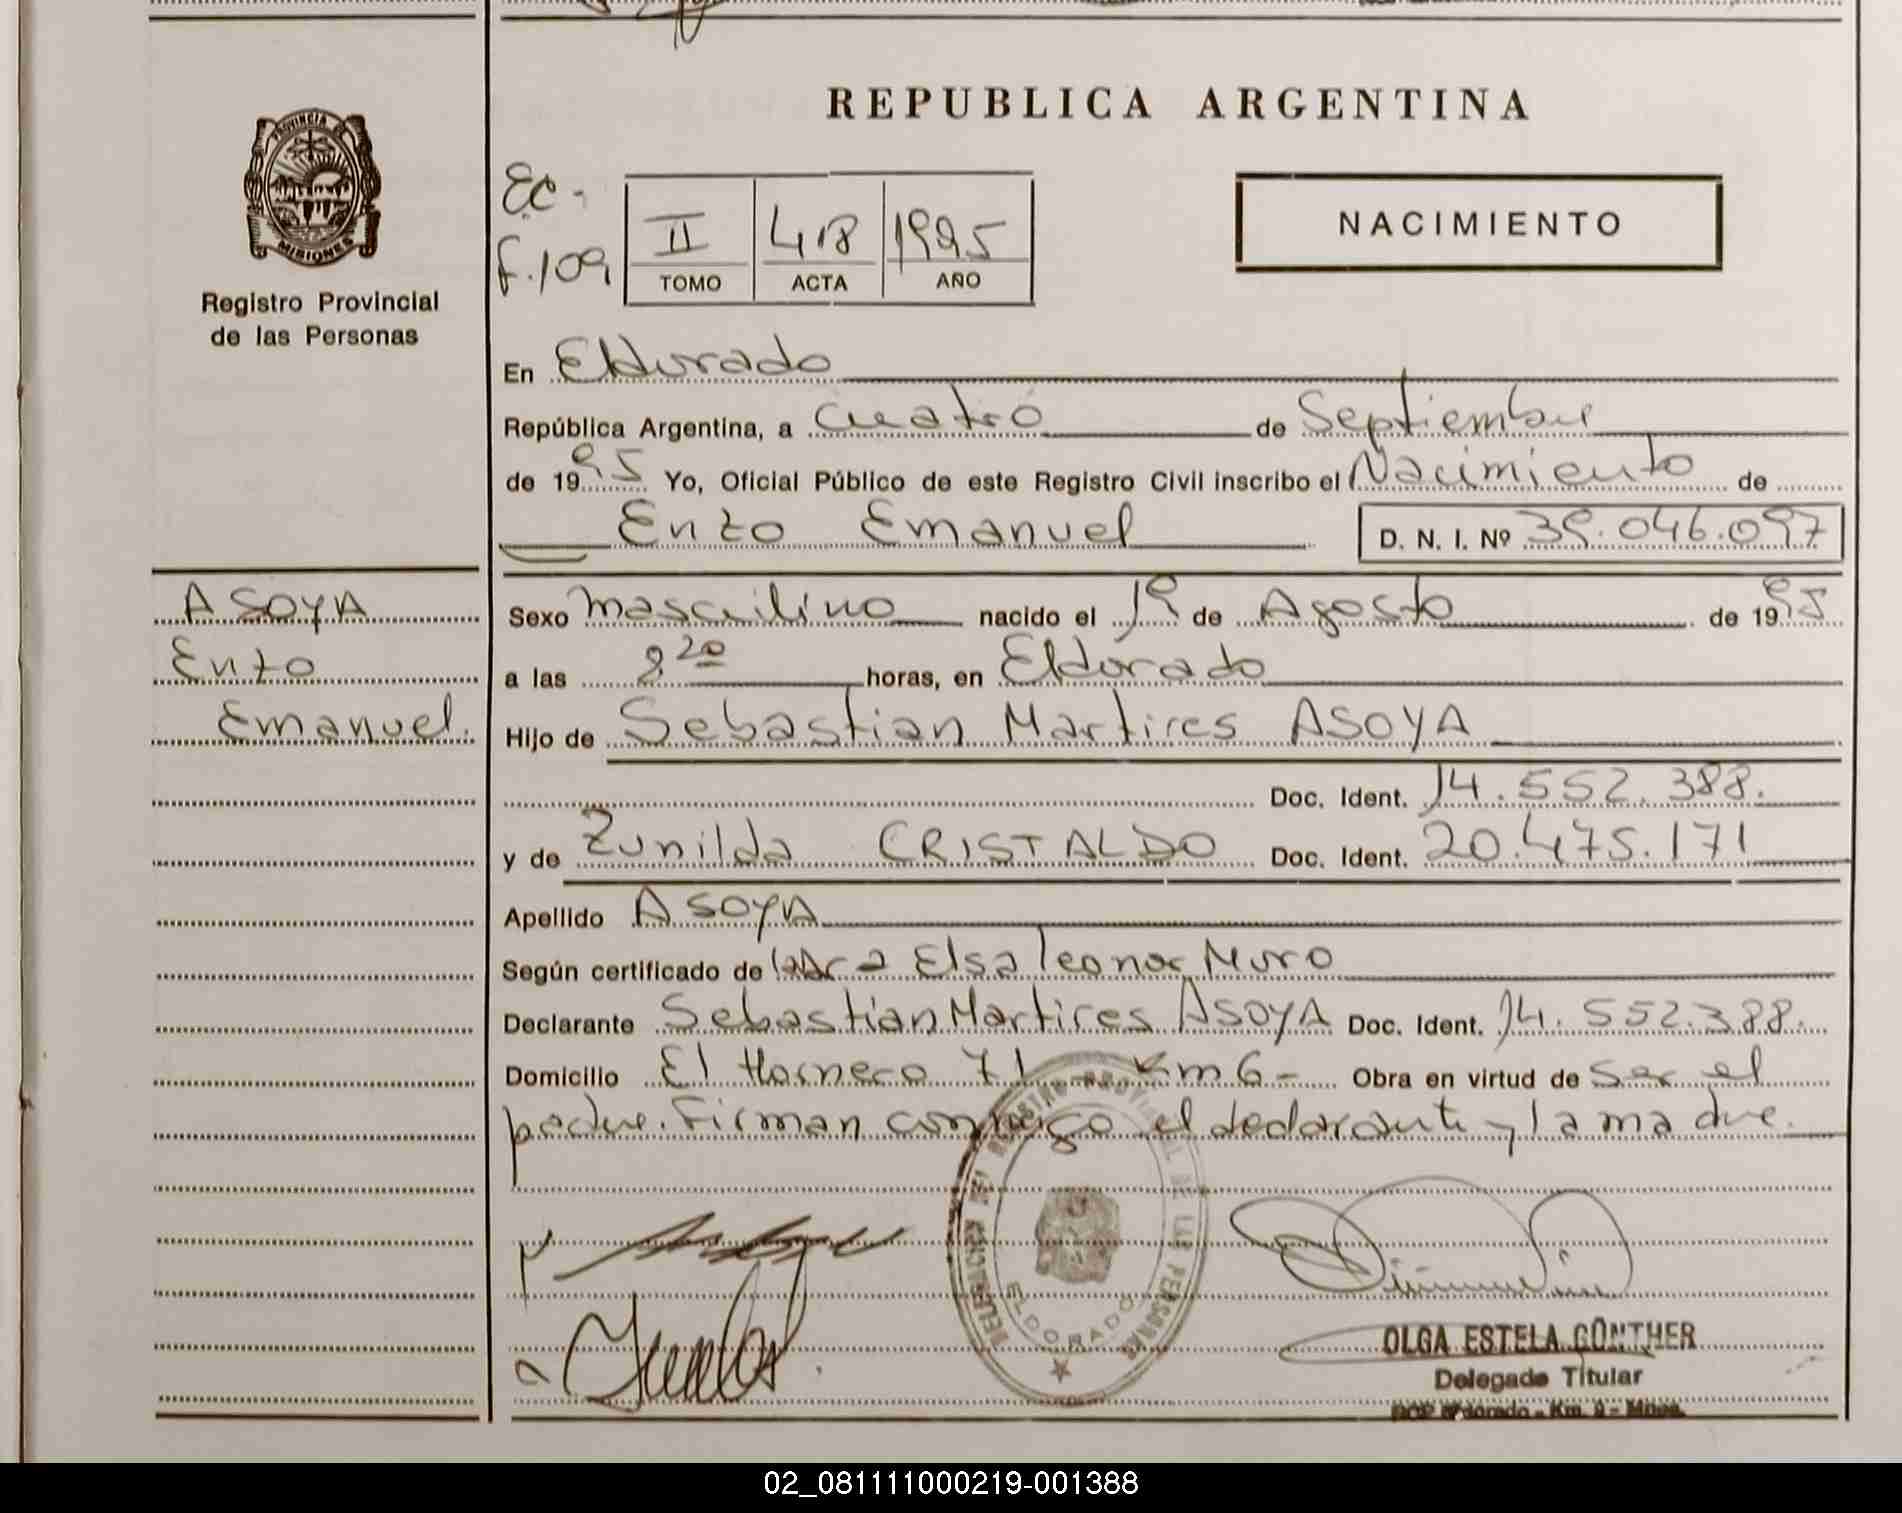 REPUBLICA ARGENTINA
PROVINCIA DE
MISIONES
Registro Provincial
de las Personas
E.C. -
F. 109
II 418 1995
TOMO ACTA AÑO
NACIMIENTO
En Eldorado
República Argentina, a Cuatro de Septiembre
de 1995 Yo, Oficial Público de este Registro Civil inscribo el Nacimiento de
Enzo Emanuel D. N. I. Nº 39.046.097
ASOYA
Enzo
Emanuel.
Sexo masculino nacido el 19 de Agosto de 1995
a las 8 20 horas, en Eldorado
Hijo de Sebastian Martires ASOYA
Doc. Ident. 14.552.388.
y de Zunilda CRISTALDO Doc. Ident. 20.475.171
Apellido ASOYA
Según certificado de Elsa Leonor Muro
Declarante Sebastian Martires ASOYA Doc. Ident. 14.552.388.
Domicilio El Hornero 71 Km 6 - Obra en virtud de ser el
padre. Firman conmigo el declarante y la madre.
DELEGACION DEL REGISTRO PROVINCIAL DE LAS PERSONAS
ELDORADO
OLGA ESTELA GÜNTHER
Delegada Titular
Eldorado - Km. 9 - Mnes.
02_081111000219-001388